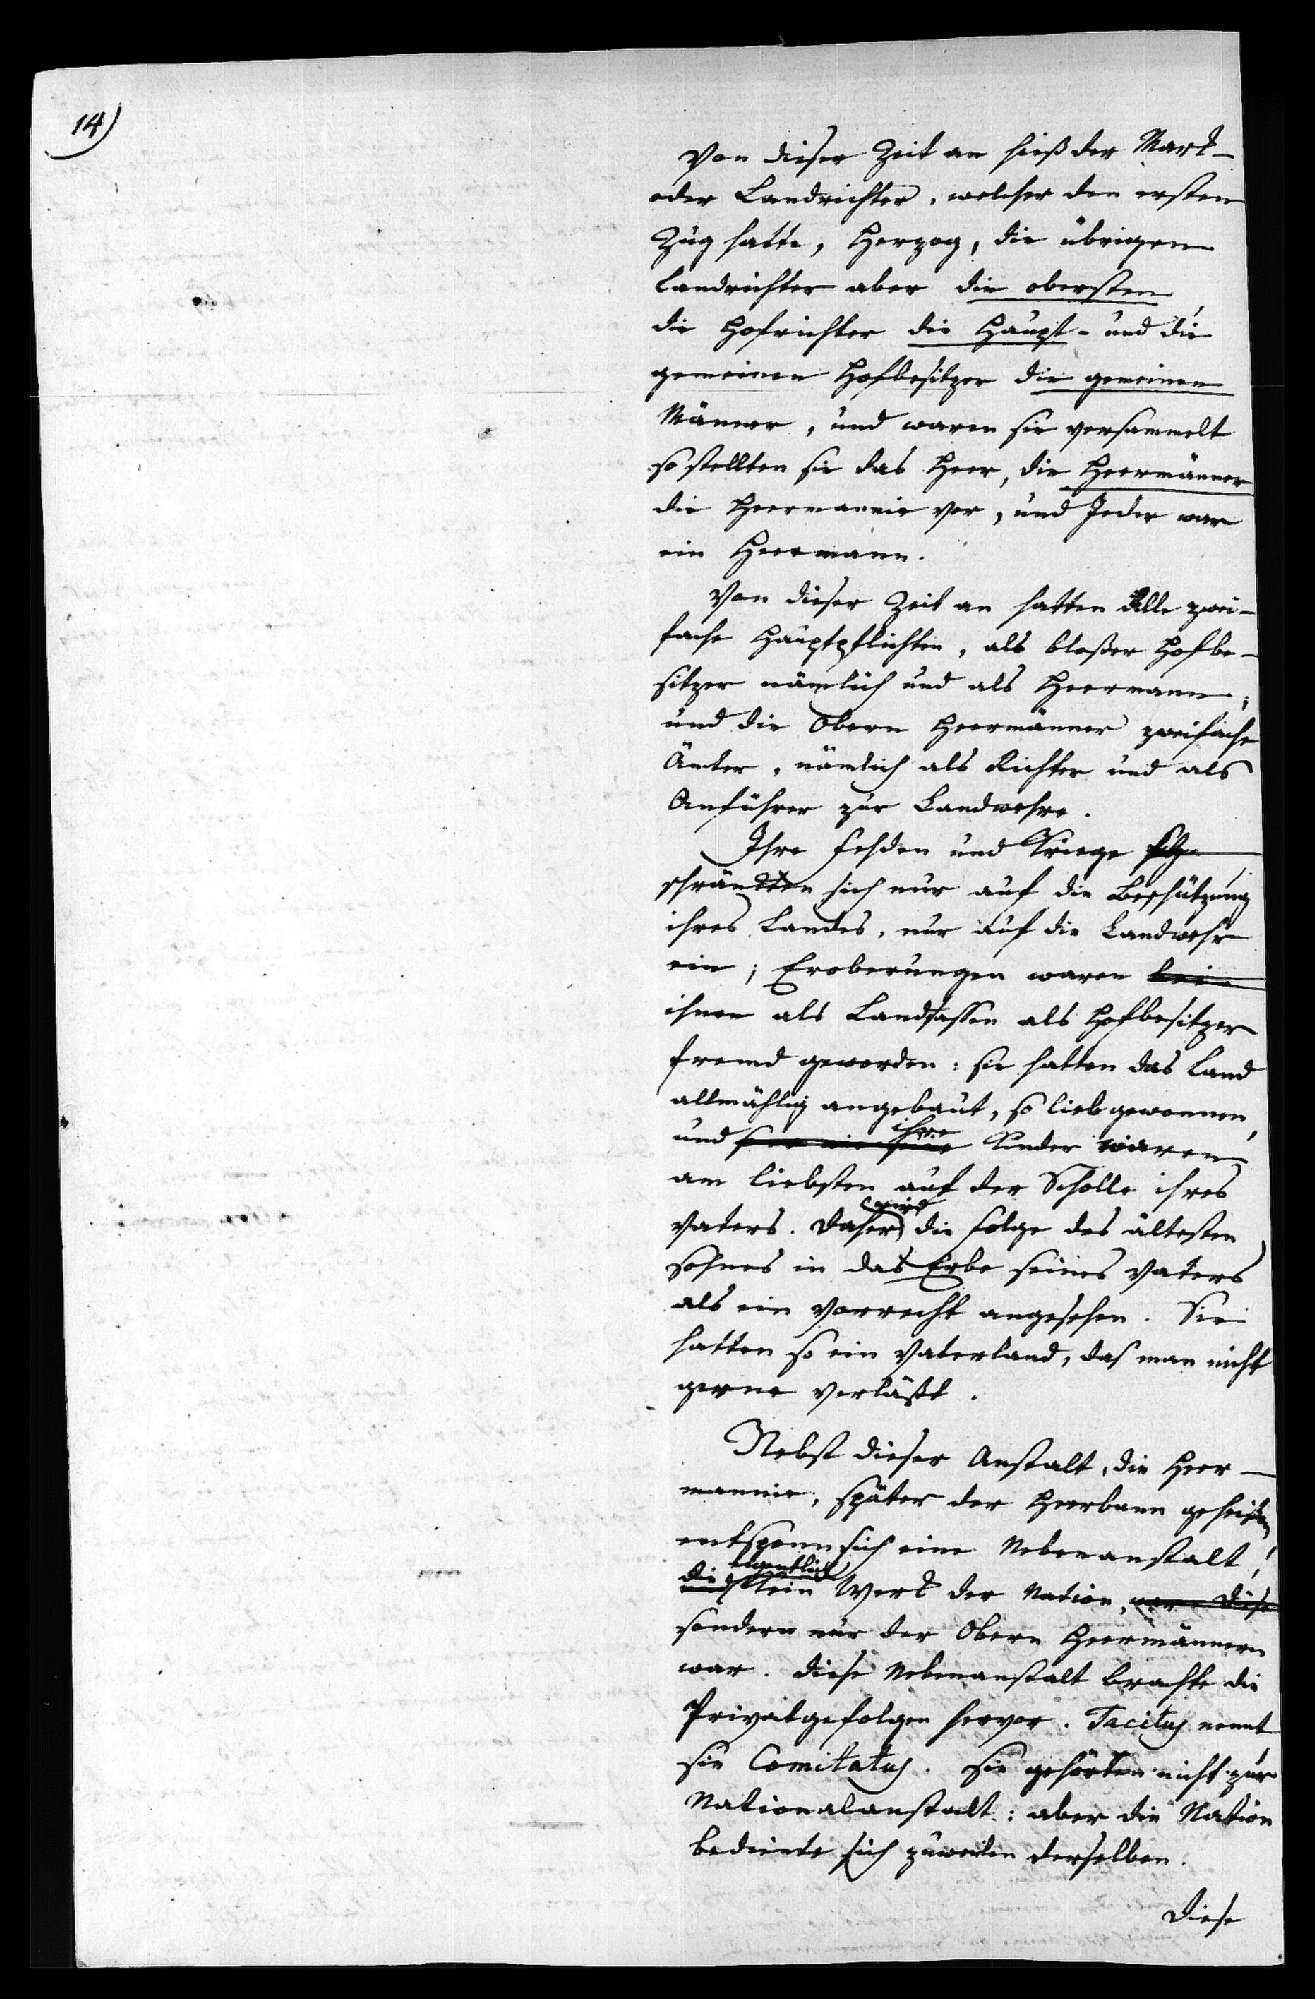 14)
Von dieser Zeit an hieß der Mark-
oder Landrichter, welcher den ersten
Zug hatte, Herzog, die übrigen
Landrichter aber die obersten,
die Hofrichter die Haupt- und die
gemeinen Hofbesitzer die gemeinen
Männer, und waren sie versammelt
so stellten sie das Heer, die Heermänner
die Heermannie vor, und Jeder war
ein Heermann.
Von dieser Zeit an hatten Alle zwei-
fache Hauptpflichten, als bloßer Hofbe-
sitzer nämlich und als Heermann;
und die Obern Heermänner zweifache
Ämter, nämlich als Richter und als
Anführer zur Landwehre.
Ihre Fehden und Kriege
schränkten sich nur auf die Beschützung
ihres Landes, nur auf die Landwehr
ein; Eroberungen waren bei
ihnen als Landsassen als Hofbesitzer
fremd geworden: sie hatten das Land
allmählig angebaut, so lieb gewonnen,
und ihre Kinder waren
am liebsten auf der Scholle ihres
Vaters. Daher wird die Folge des ältesten
Sohnes in das Erbe seines Vaters
als ein Vorrecht angesehen. Sie
hatten so ein Vaterland, das man nicht
gerne verläßt.
Nebst dieser Anstalt, die Heer-
mannie, später der Heerbann geheißen,
entspann sich eine Nebenanstalt,
die eigentlich kein Werk der Nation, war diese
sondern nur der Obern Heermännern
war. Diese Nebenanstalt brachte die
Privatgefolgen hervor. Tacitus nennt
sie Comitatus. Sie gehörten nicht zur
Nationalanstalt: aber die Nation
bediente sich zuweilen derselben.
Diese